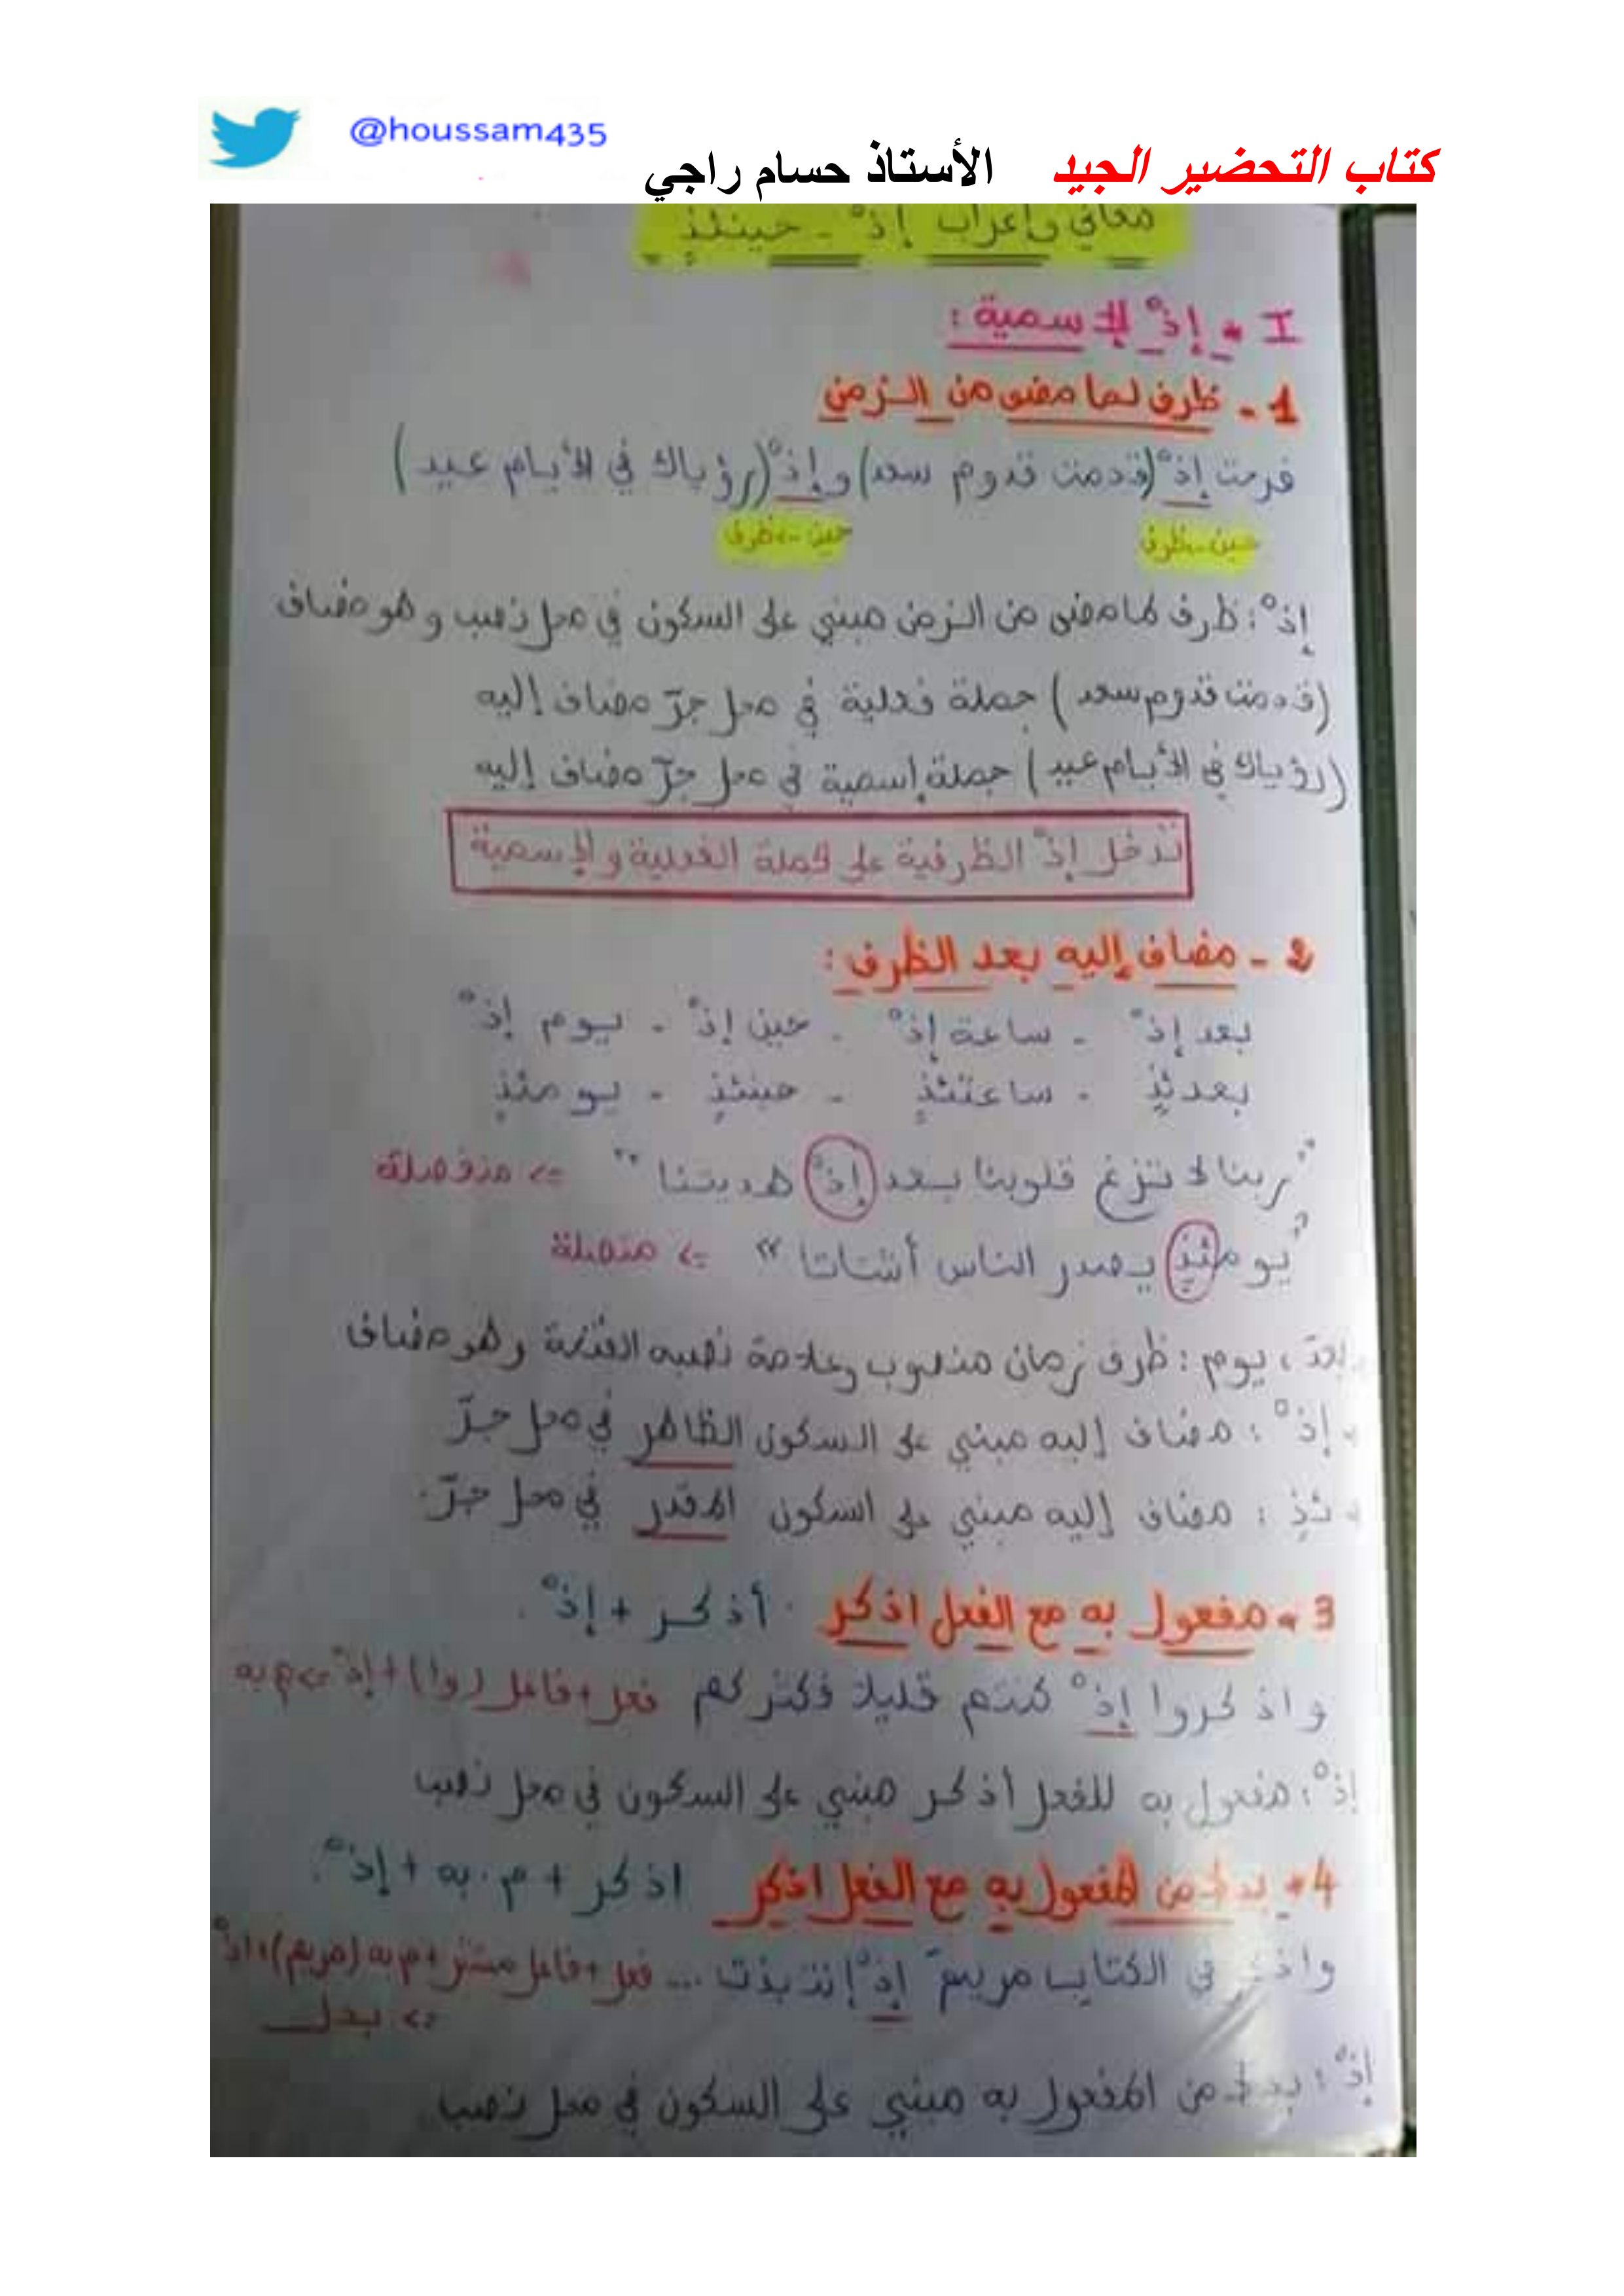 @houssam435
كتاب التحضير الجيد الأستاذ حسام راجي
معاني وإعراب إذْ - حينئذٍ
I - إذْ الإسمية :
1 - ظرف لما مضى من الزمن
فرحت إذْ (قدمت قدوم سعد) وإذْ (رؤياك في الأيام عيد)
حين -> ظرف حين -> ظرف
إذْ : ظرف لما مضى من الزمن مبني على السكون في محل نصب وهو مضاف
(قدمت قدوم سعد) جملة فعلية في محل جرّ مضاف إليه
(رؤياك في الأيام عيد) جملة إسمية في محل جرّ مضاف إليه
تدخل إذْ الظرفية على الجملة الفعلية والإسمية
2 - مضاف إليه بعد الظرف :
بعد إذْ - ساعة إذْ - حين إذْ - يوم إذْ
بعدئذٍ - ساعتئذٍ - حينئذٍ - يومئذٍ
"ربنا لا تزغ قلوبنا بعد إذْ هديتنا" => منفصلة
"يومئذٍ يصدر الناس أشتاتا" => متصلة
بعد ، يوم : ظرف زمان منصوب وعلامة نصبه الفتحة وهو مضاف
إذْ : مضاف إليه مبني على السكون الظاهر في محل جرّ
ئذٍ : مضاف إليه مبني على السكون المقدر في محل جرّ.
3 - مفعول به مع الفعل اذكر . أذكر + إذْ .
واذكروا إذْ كنتم قليلا فكثركم فعل + فاعل (وا) + إذْ => م به
إذْ : مفعول به للفعل أذكر مبني على السكون في محل نصب
4 - بدل من المفعول به مع الفعل اذكر اذكر + م. به + إذْ.
واذكر في الكتاب مريمَ إذْ إنتبذت ... فعل + فاعل مستتر + م به (مريم) + إذْ
=> بدل
إذْ : بدل من المفعول به مبني على السكون في محل نصب